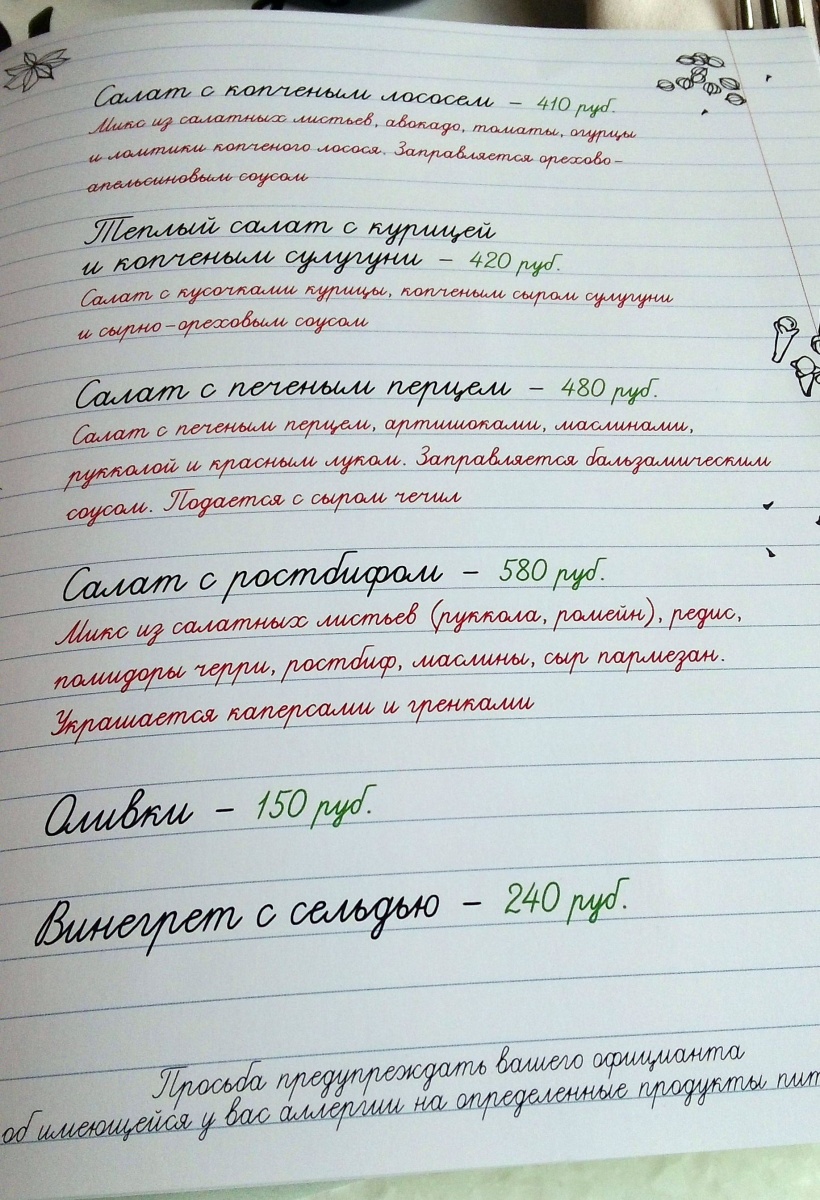 Салат с копченым лососем – 410 руб.
Микс из салатных листьев, авокадо, томаты, огурцы
и ломтики копченого лосося. Заправляется орехово-
апельсиновым соусом
Теплый салат с курицей
и копченым сулугуни – 420 руб.
Салат с кусочками курицы, копченым сыром сулугуни
и сырно-ореховым соусом
Салат с печеным перцем – 480 руб.
Салат с печеным перцем, артишоками, маслинами,
рукколой и красным луком. Заправляется бальзамическим
соусом. Подается с сыром чечил
Салат с ростбифом – 580 руб.
Микс из салатных листьев (руккола, ромейн), редис,
помидоры черри, ростбиф, маслины, сыр пармезан.
Украшается каперсами и гренками
Оливки – 150 руб.
Винегрет с сельдью – 240 руб.
Просьба предупреждать вашего официанта
об имеющейся у вас аллергии на определенные продукты пит